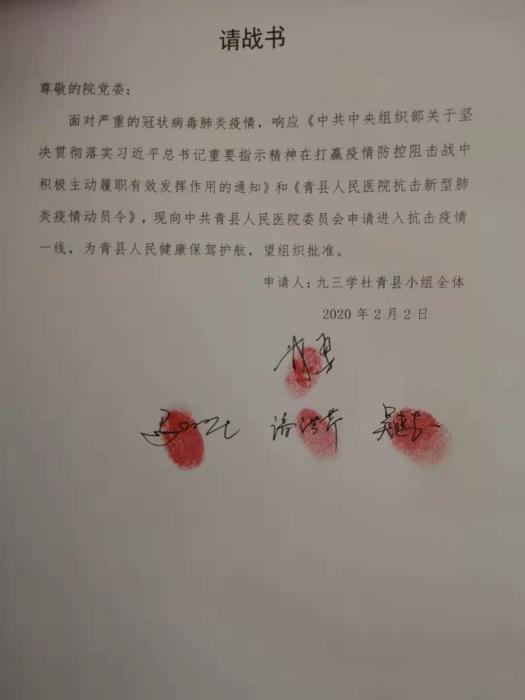 请战书
尊敬的院党委：
面对严重的冠状病毒肺炎疫情，响应《中共中央组织部关于坚
决贯彻落实习近平总书记重要指示精神在打赢疫情防控阻击战中
积极主动履职有效发挥作用的通知》和《青县人民医院抗击新型肺
炎疫情动员令》，现向中共青县人民医院委员会申请进入抗击疫情
一线，为青县人民健康保驾护航，望组织批准。
申请人：九三学社青县小组全体
2020 年 2 月 2 日